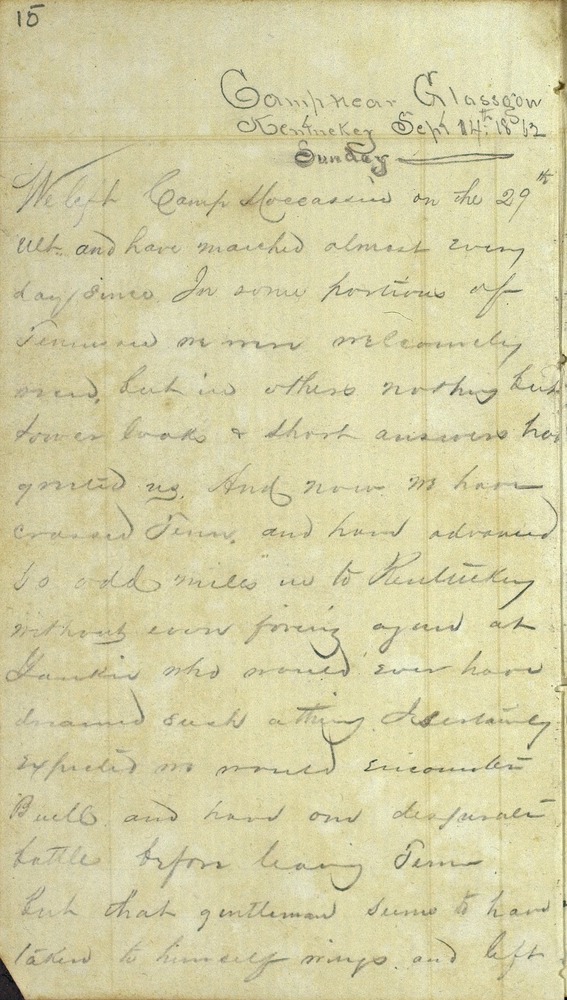 15
Camp near Glassgow
Kentuckey Sept 14th 1862
Sunday
We left Camp Moccassin on the 29th
ult. and have marched almost every
day since. In some portions of
Tennessee we were welcomely
but in others nothing but
sower looks & short answers has
greeted us. And now we have
crossed Tenn. and have advanced
50 odd miles in to Kentuckey
without even firing a gun at
Yankie who would ever have
dreamed such a thing. I certainly
expected we would encounter
Buell and have one desperate
battle before leaving Tenn
but that gentleman seems to have
taken to himself wings and left